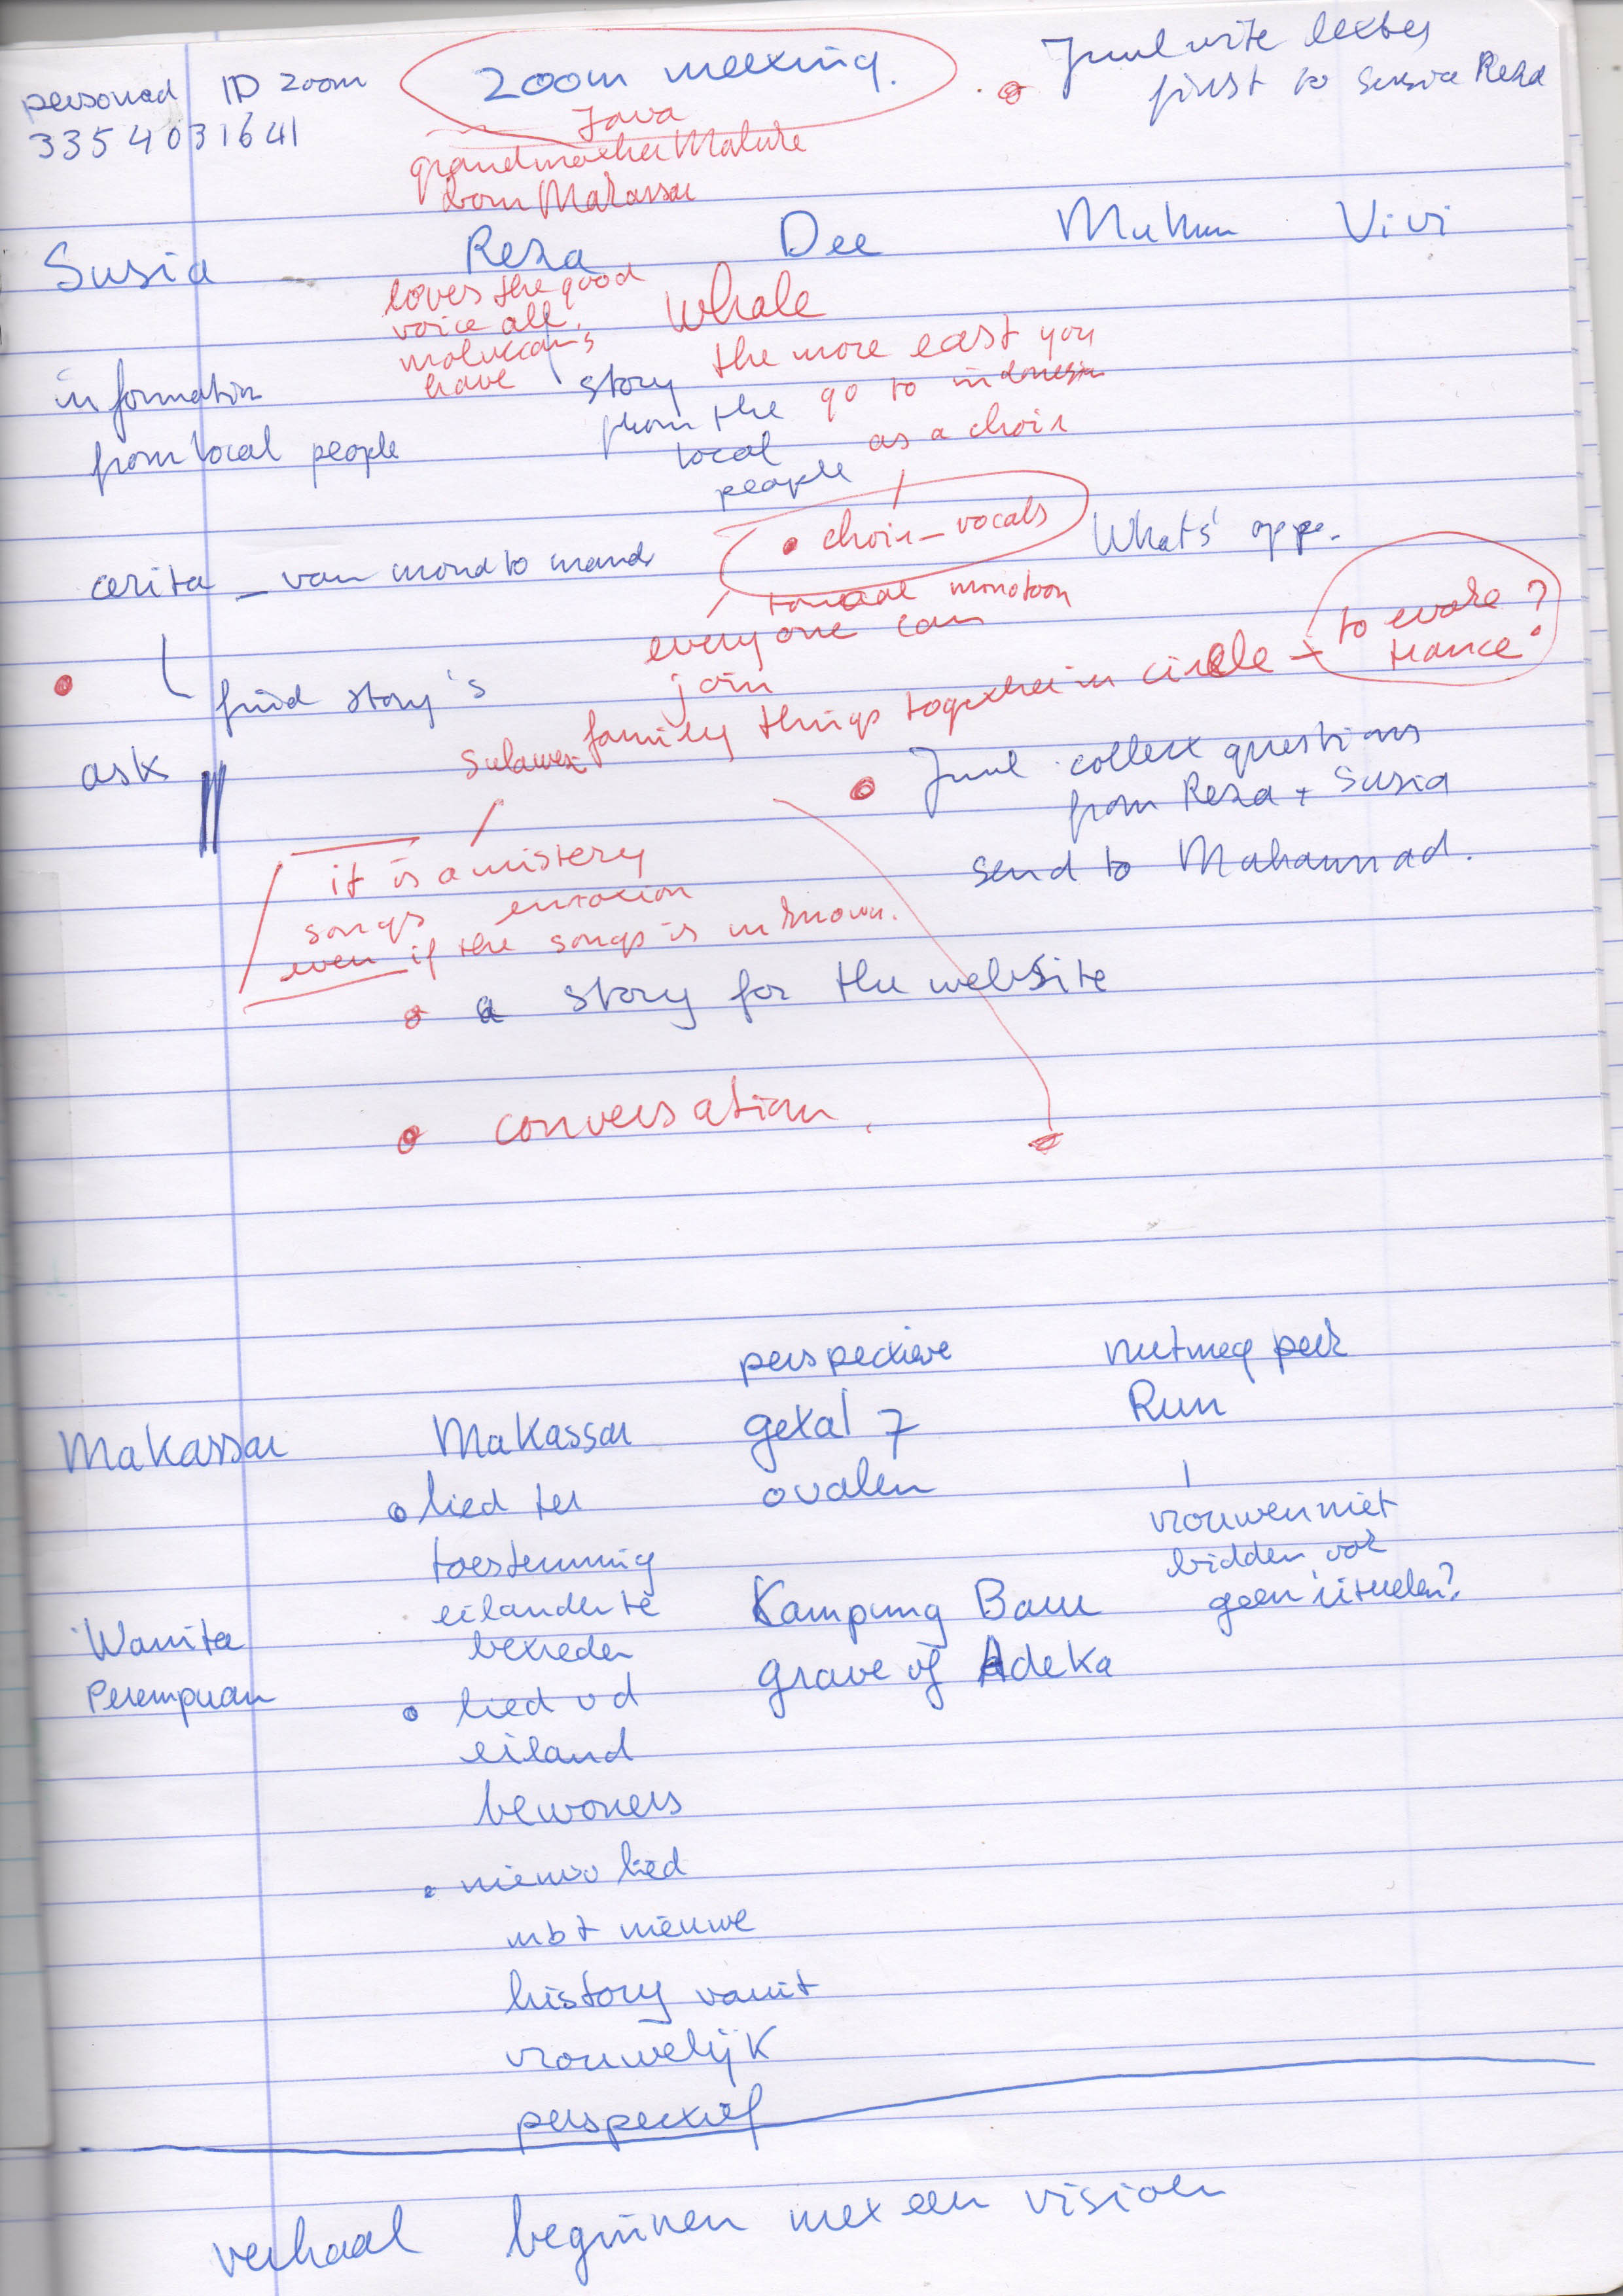 personal ID zoom
3354031641
zoom meeting.
Java
grandmother
born Makassar
first to Susia Reza
Susia Reza Dee Vivi
loves the good
voice all
moluccans
have
Whale
the more east you
go to indonesia
as a choir
information
from local people
story
from the
local
people
• choir_vocals
What's app.
cerita _ van mond to mond
monotoon
everyone can
join
to evoke ?
trance
find story's
family things together in circle –
ask
Sulawesi
• Juul collect questions
from Reza + Susia
send to Mohammad.
it is a mistery
songs emotion
even if the songs is unknown.
• a story for the website
• conversation.
perspective
nutmeg perk
Run
getal 7
ovalen
Makassar
Makassar
• lied ter
toestemming
eilanden te
betreden
vrouwen niet
bidden ook
geen rituelen?
Kampung Baru
grave of Adeka
Wanita
Perempuan
• lied vd
eiland
bewoners
• nieuw lied
mbt nieuwe
history vanuit
vrouwelijk
perspectief
verhaal beginnen met een visioen